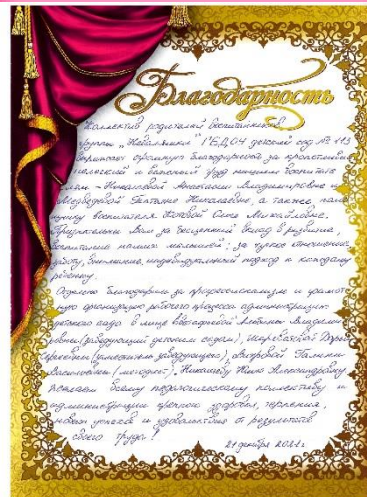 Благодарность
Коллектив родителей воспитанников
группы "Неваляшки" ГБДОУ детский сад № 113
огромную благодарность за кропотливый
нелегкий и труд нашим
Николаевой Анастасии Владимировне и
Медведевой Татьяне Николаевне, а также
воспитателя Михайловне.
Признательны Вам за бесценный вклад в развитие,
воспитание наших малышей; за чуткое отношение,
заботу, внимание, индивидуальный подход к каждому
ребенку.
Отдельно благодарим за профессионализм и грамот
ную организацию рабочего процесса администрацию
детского сада в лице Владими
ровны (заведующий детским садом),
(заместитель заведующего), Галину
Васильевну (методист),
Желаем всему педагогическому коллективу и
администрации крепкого здоровья, терпения,
новых успехов и удовольствия от результатов
своего труда!
21 декабря 2021 г